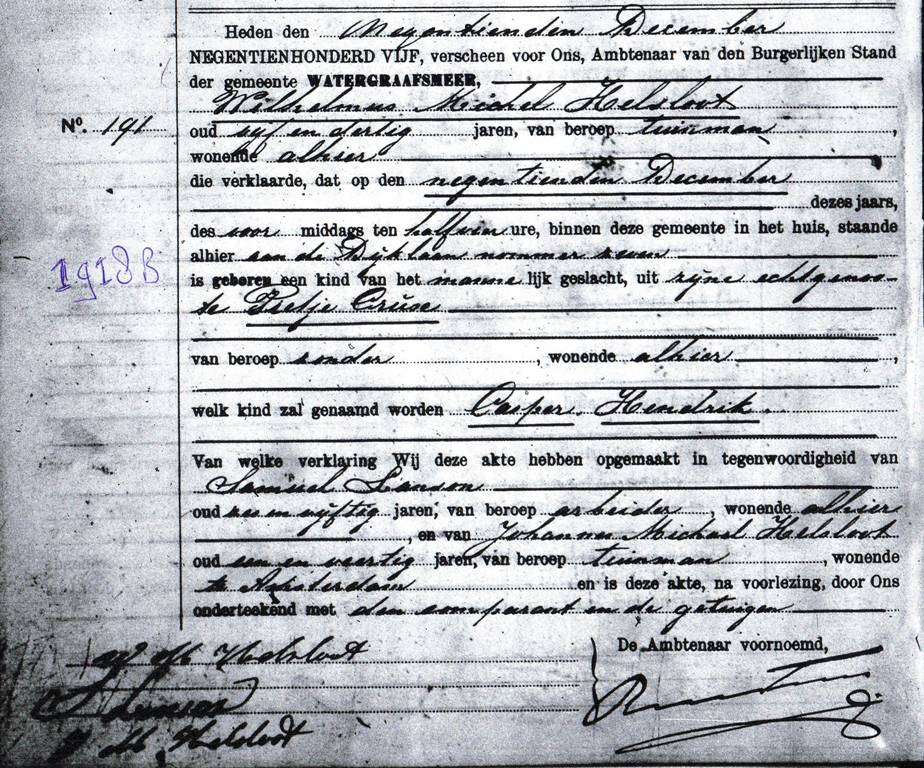 Heden den negentienden December
NEGENTIENHONDERD VIJF, verscheen voor Ons, Ambtenaar van den Burgerlijken Stand
der gemeente WATERGRAAFSMEER,
Wilhelmus Michel Helsloot
No. 191
oud vijf en dertig jaren, van beroep tuinman,
wonende alhier
die verklaarde, dat op den negentienden December
dezes jaars,
des voor middags ten half vier ure, binnen deze gemeente in het huis, staande
alhier aan de Dijklaan nommer zeven
1918B
is geboren een kind van het manne lijk geslacht, uit zijne echtgenoo-
te Pietje Cruse
van beroep zonder, wonende alhier,
welk kind zal genaamd worden Casper Hendrik.
Van welke verklaring Wij deze akte hebben opgemaakt in tegenwoordigheid van
Samuel Lanson
oud zes en vijftig jaren, van beroep arbeider, wonende alhier
, en van Johannes Michael Helsloot
oud een en veertig jaren, van beroep tuinman, wonende
te Amsterdam en is deze akte, na voorlezing, door Ons
onderteekend met den comparant en de getuigen
De Ambtenaar voornoemd,
W M Helsloot
S Lanson
J M Helsloot